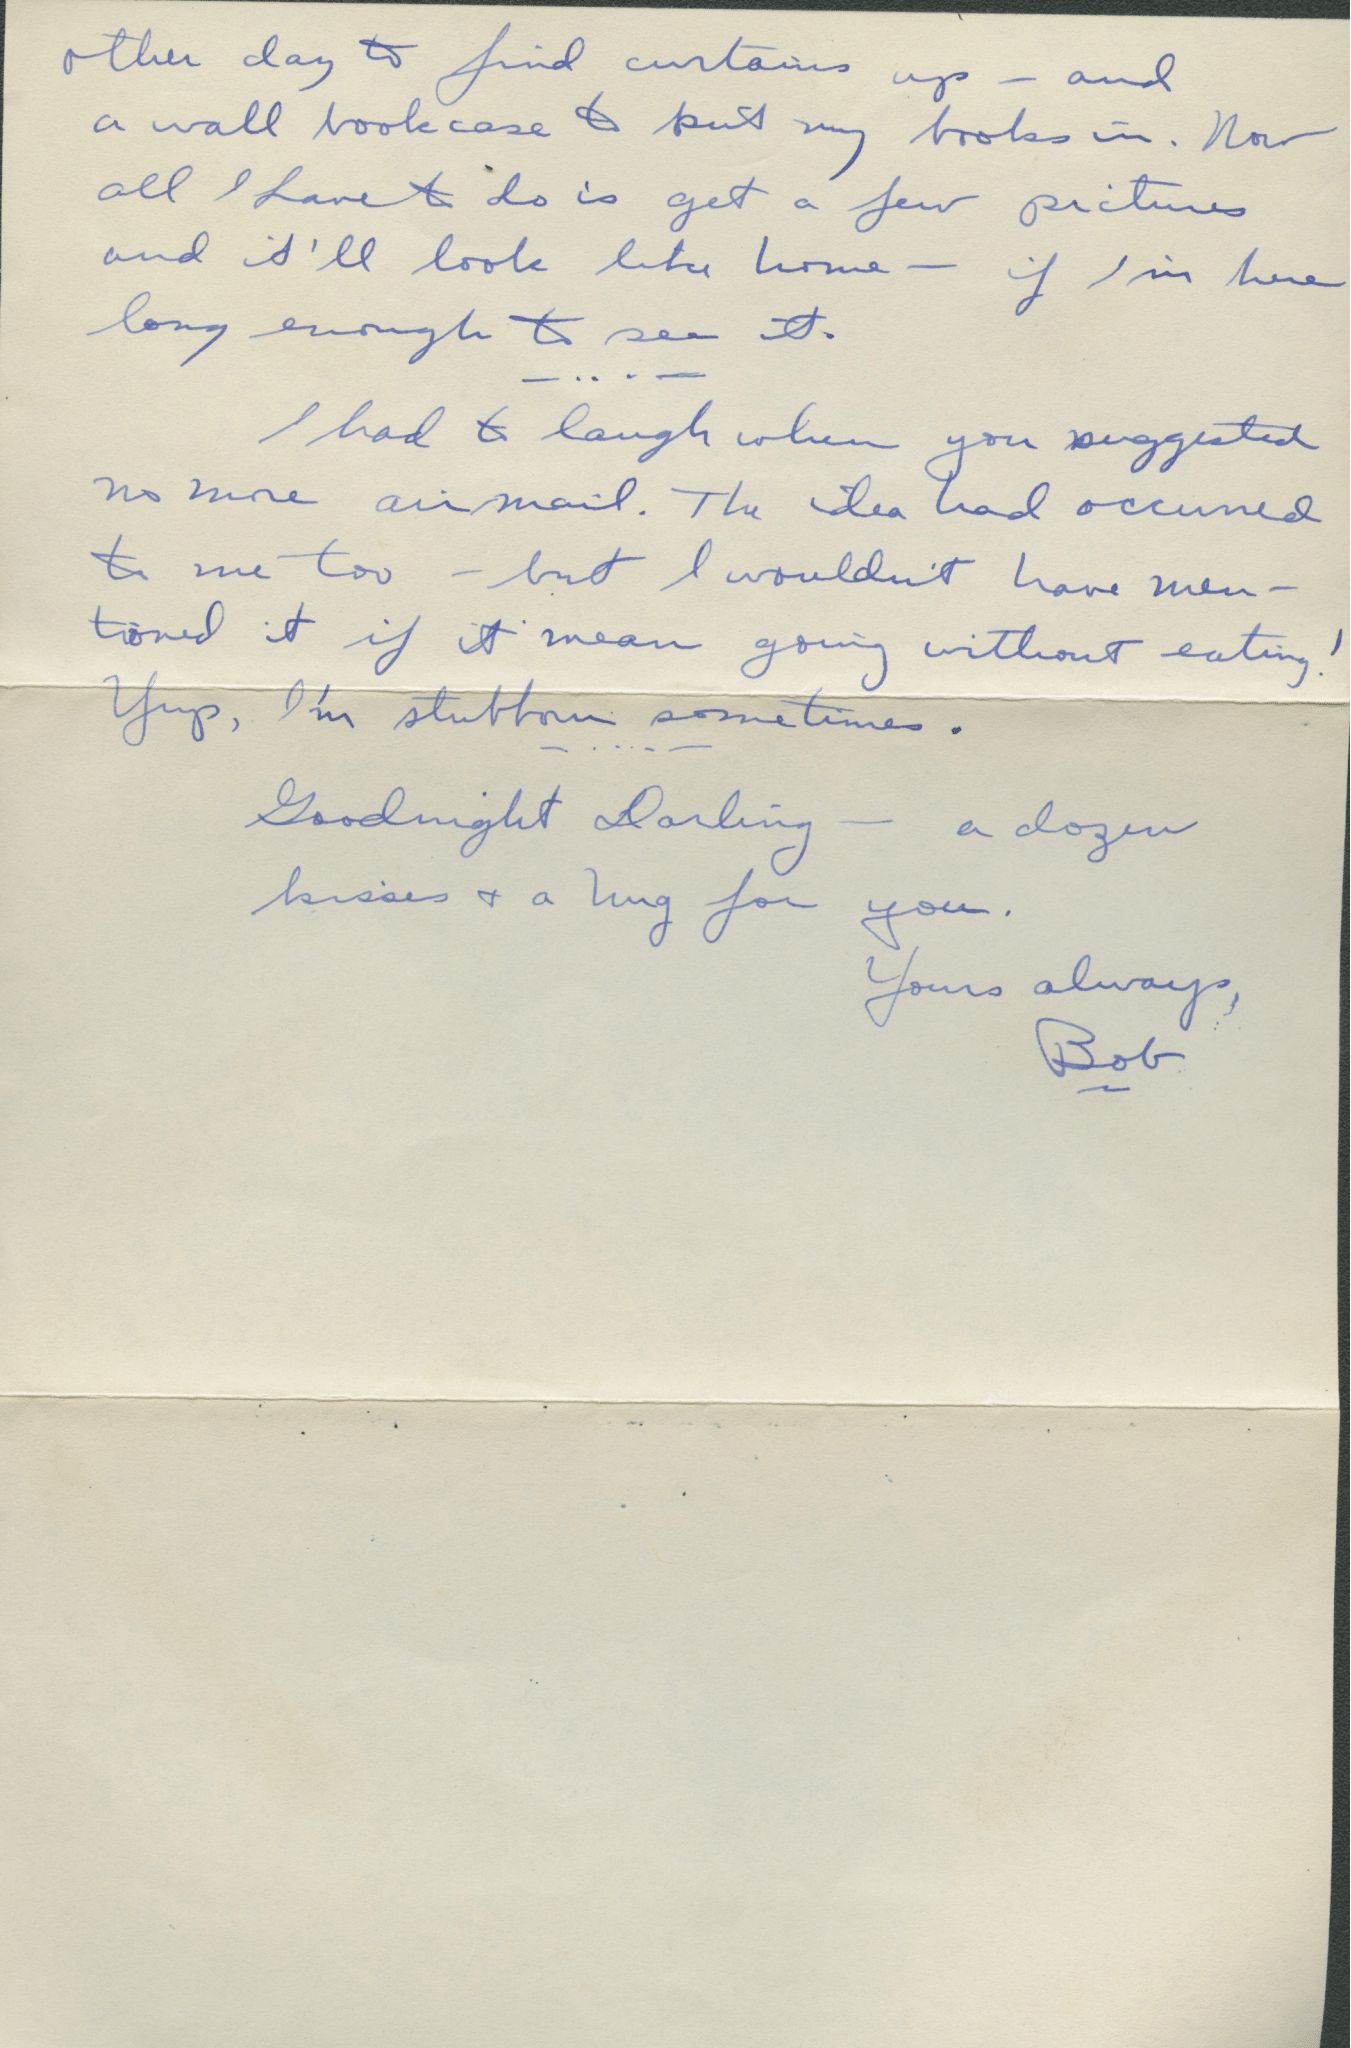 other day to find curtains up — and
a wall bookcase to put my books in. Now
all I have to do is get a few pictures
and it'll look like home — if I'm here
long enough to see it.
I had to laugh when you suggested
no more airmail. The idea had occurred
to me too — but I wouldn't have men-
tioned it if it mean going without eating!
Yup, I'm stubborn sometimes.
Goodnight Darling — a dozen
kisses + a hug for you.
Yours always,
Bob